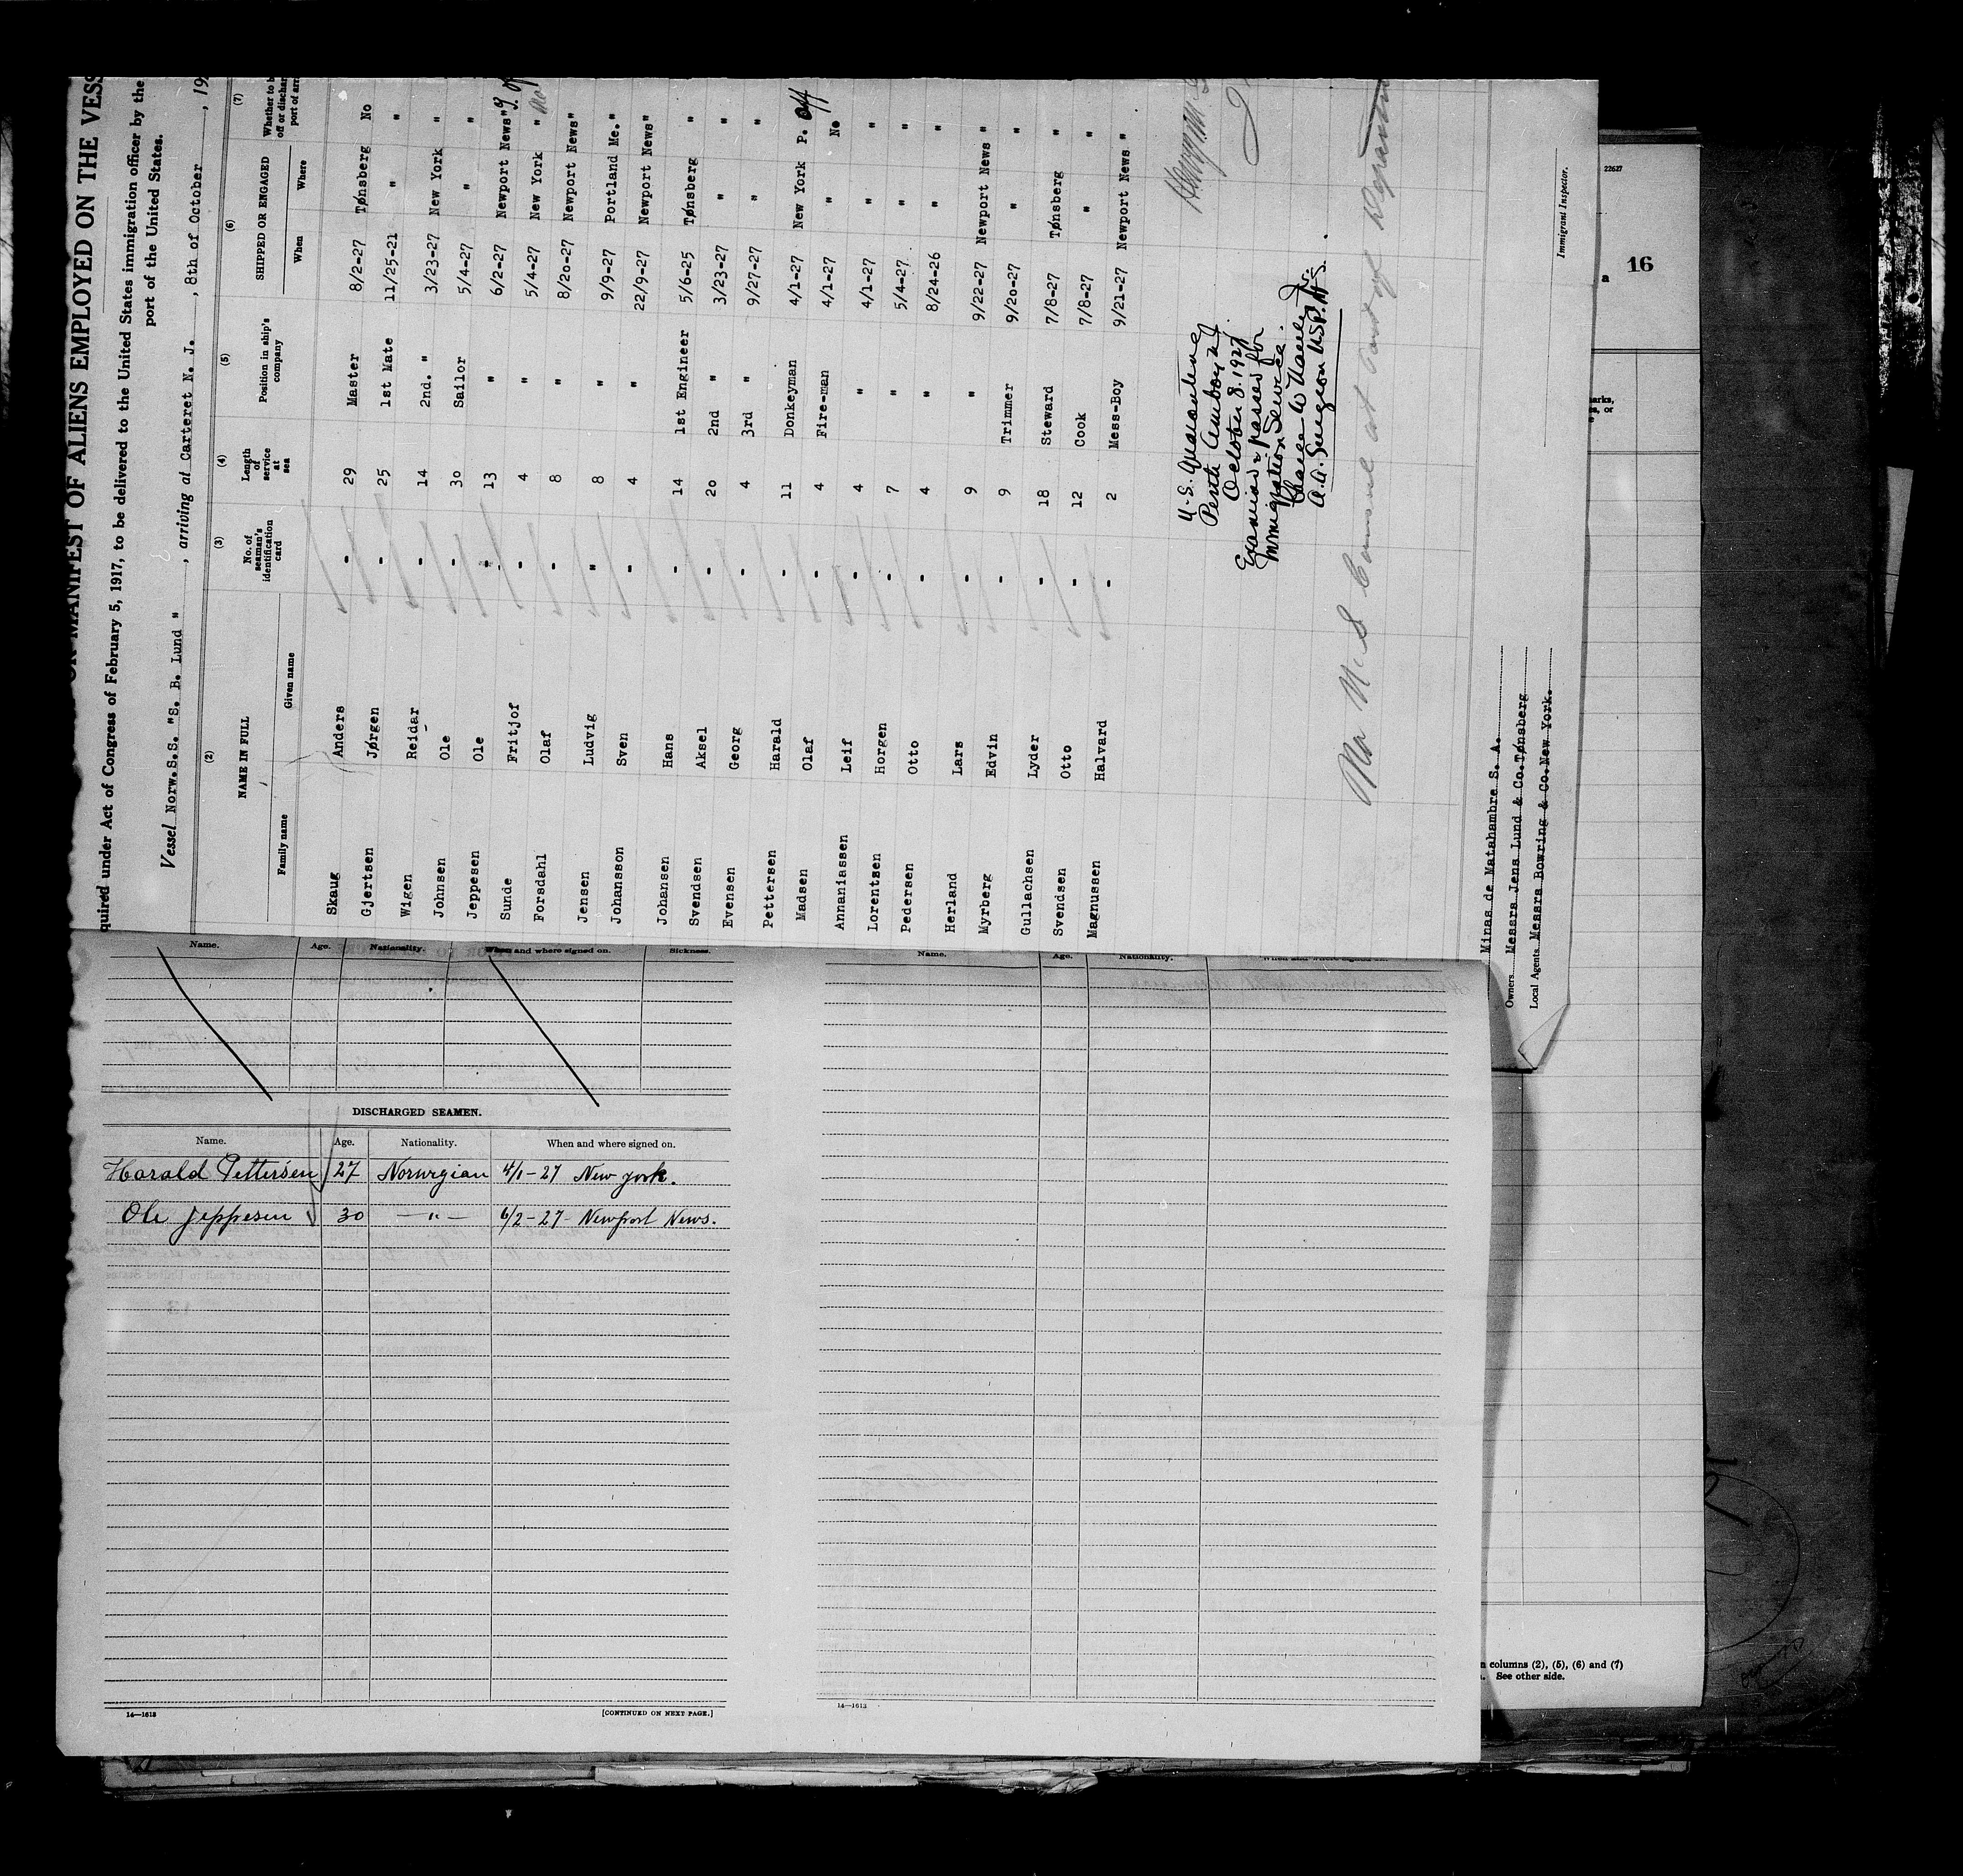 MANIFEST OF ALIENS EMPLOYED ON THE VESS
quired under Act of Congress of February 5, 1917, to be delivered to the United States immigration officer by the
port of the United States.
Vessel Norw.S.S. "S. B. Lund ", arriving at Carteret N. J., 8th of October, 19
(2) (3) (4) (5) (6) (7)
NAME IN FULL No. of seaman's identification card Length of service at sea Position in ship's company SHIPPED OR ENGAGED Whether to b
off or dischar
port of arr
Family name Given name When Where
Skaug Anders - 29 Master 8/2-27 Tønsberg No
Gjertsen Jørgen - 25 1st Mate 11/25-21 " "
Wigen Reidar - 14 2nd. " 3/23-27 New York "
Johnsen Ole - 30 Sailor 5/4-27 " "
Jeppesen Ole - 13 " 6/2-27 Newport News "
Sunde Fritjof - 4 " 5/4-27 New York " no
Forsdahl Olaf - 8 " 8/20-27 Newport News"
Jensen Ludvig " 8 " 9/9-27 Portland Me."
Johansson Sven - 4 " 22/9-27 Newport News"
Johansen Hans - 14 1st Engineer 5/6-25 Tønsberg "
Svendsen Aksel - 20 2nd " 3/23-27 " "
Evensen Georg - 4 3rd " 9/27-27 " "
Pettersen Harald - 11 Donkeyman 4/1-27 New York P. off
Madsen Olaf - 4 Fire-man 4/1-27 " No
Annaniassen Leif - 4 " 4/1-27 " "
Lorentzen Horgen - 7 " 5/4-27 " "
Pedersen Otto - 4 " 8/24-26 " "
Herland Lars - 9 " 9/22-27 Newport News "
Myrberg Edvin - 9 Trimmer 9/20-27 " "
Gullachsen Lyder - 18 Steward 7/8-27 Tønsberg "
Svendsen Otto - 12 Cook 7/8-27 " "
Magnussen Halvard - 2 Mess-Boy 9/21-27 Newport News "
U.S. Quarantine
Perth Amboy N.J.
October 8. 1927
Examined & passed for
Immigration Service.
A.A. Surgeon U.S.P.H.S.
No U.S. Consul at Port of Departure
Minas de Matahambre S. A.
Owners Messrs Jens Lund & Co. Tønsberg
Local Agents Messrs Bowring & Co. New York.
Immigrant Inspector.
22627
16
arks,
s, or
n columns (2), (5), (6) and (7)
. See other side.
Name. Age. Nationality. When and where signed on. Sickness.
DISCHARGED SEAMEN.
Name. Age. Nationality. When and where signed on.
Harald Pettersen 27 Norwegian 4/1-27 New york.
Ole Jeppesen 30 —"— 6/2-27- Newport News.
14—1613 [CONTINUED ON NEXT PAGE.]
Name. Age. Nationality. When and where signed on.
14—1613